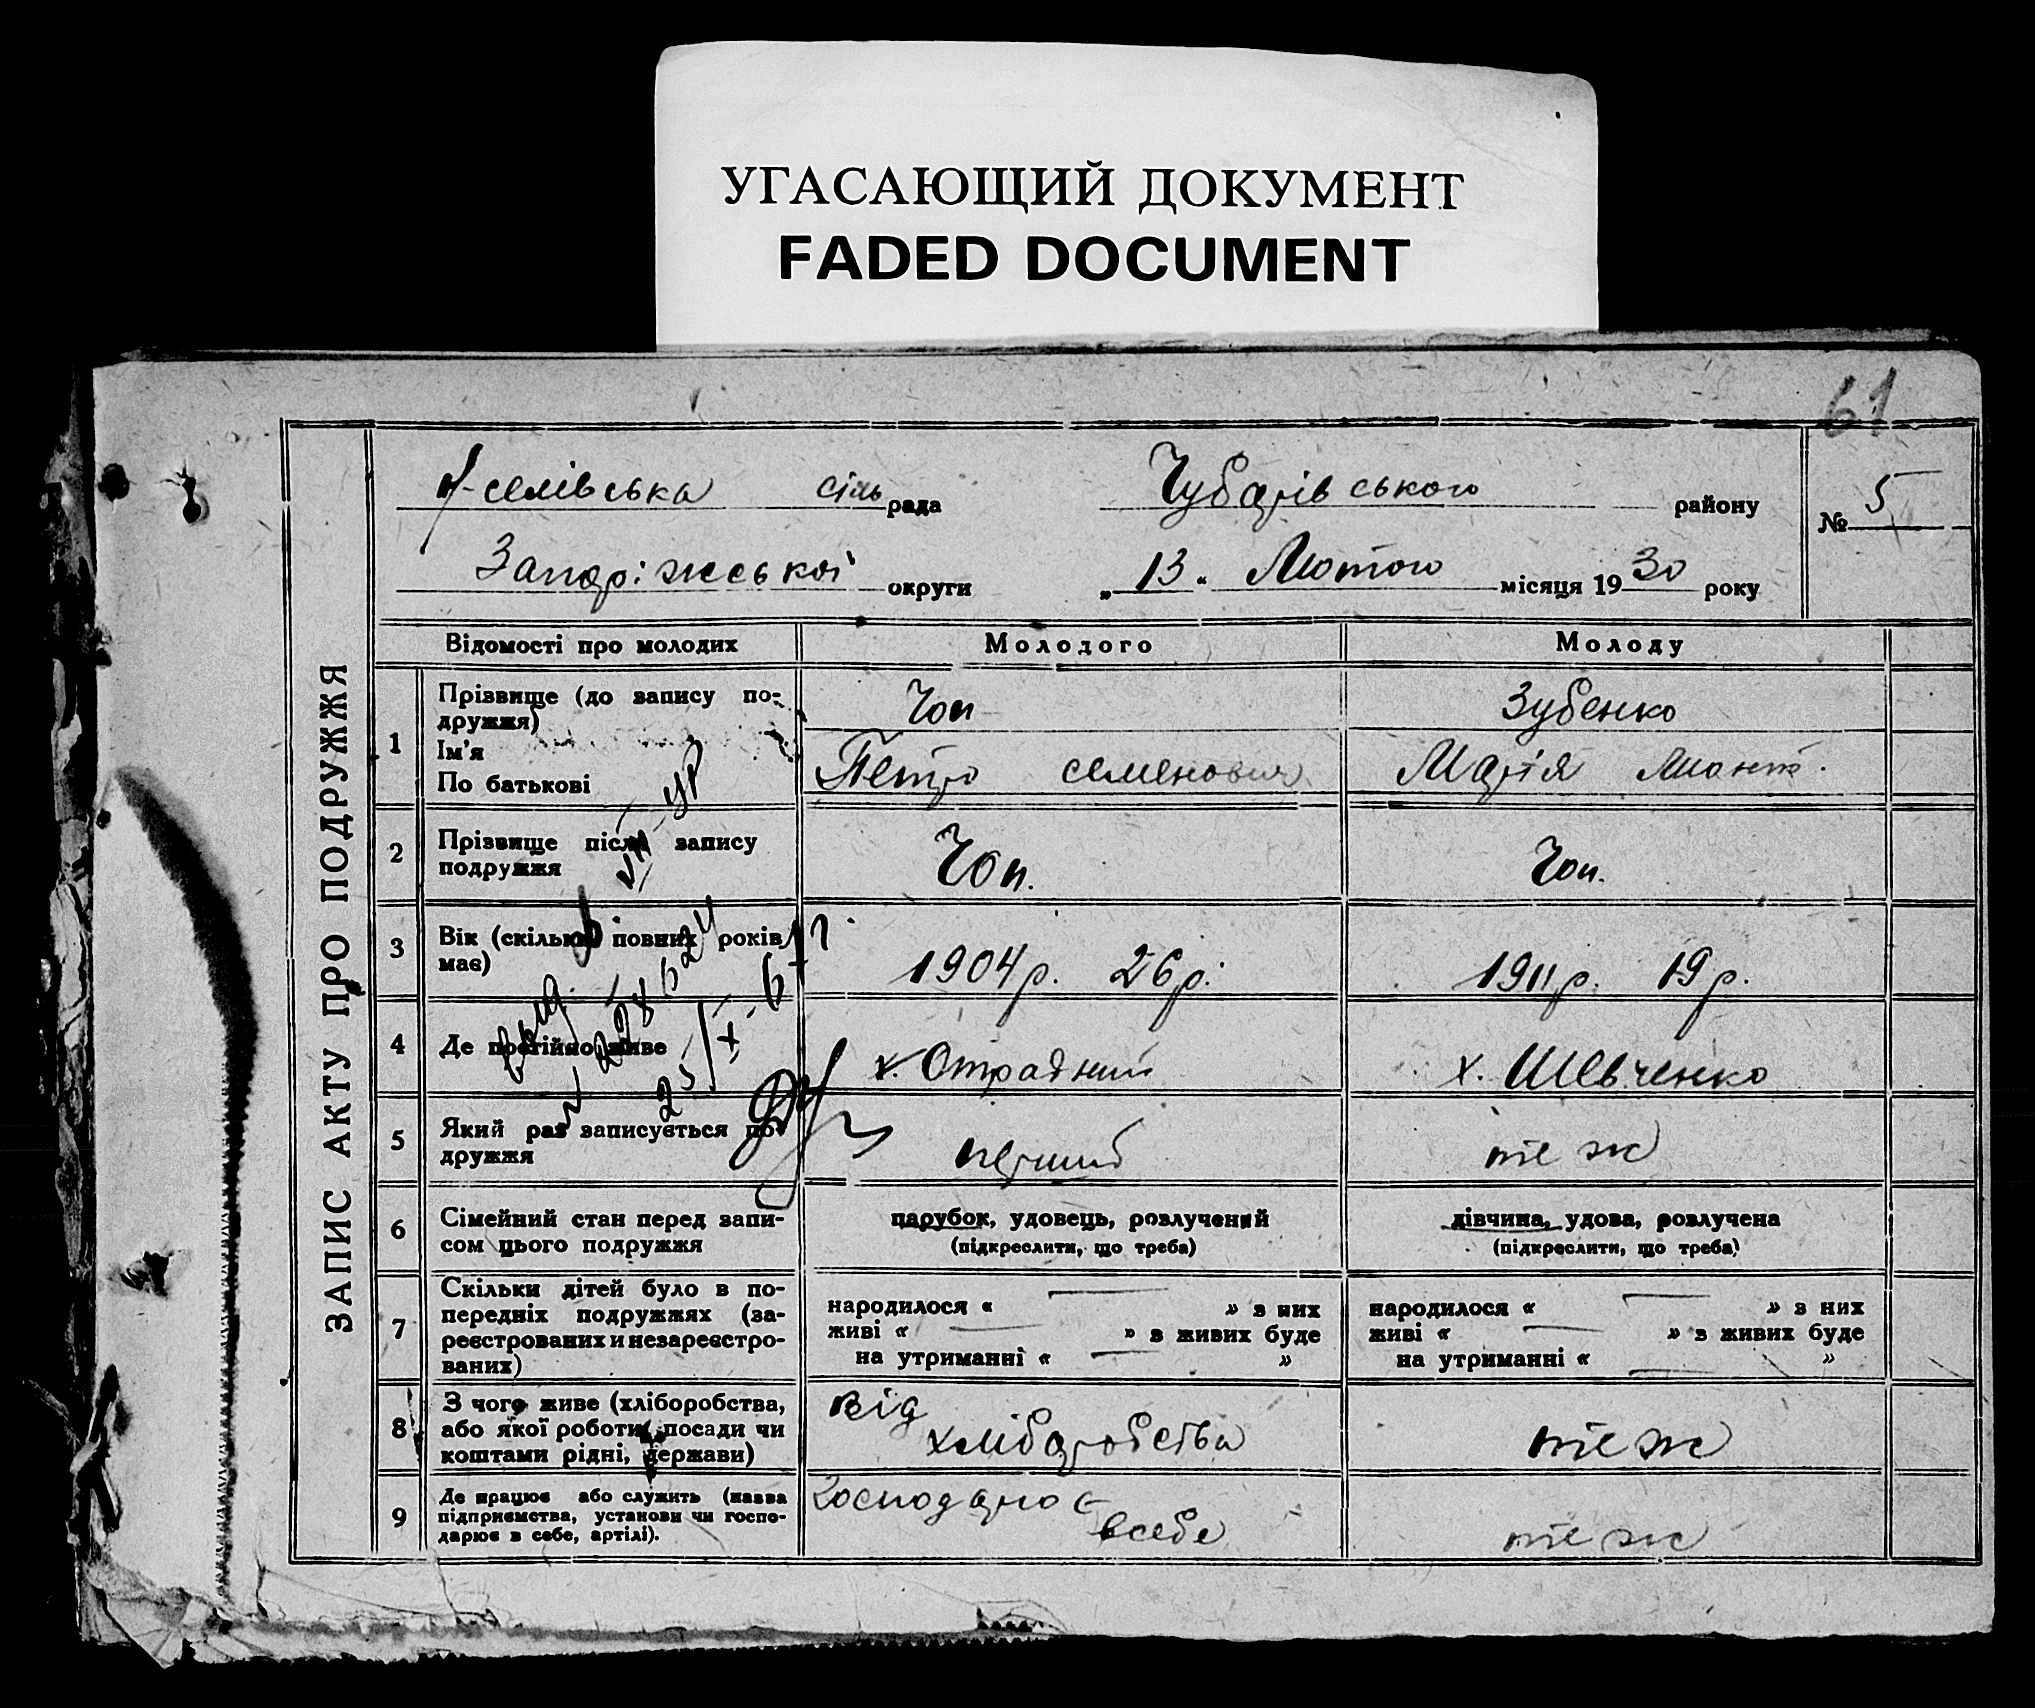 УГАСАЮЩИЙ ДОКУМЕНТ
FADED DOCUMENT
61
ЗАПИС АКТУ ПРО ПОДРУЖЖЯ
селівська сіль рада Чубарівського району № 5
Запоріжської округи „13“ Лютого місяця 1930 року
Відомості про молодих Молодого Молоду
1 Прізвище (до запису по-
дружжя)
Чоп Зубенко
Ім'я
По батькові
Петро Семенович Марія
2 Прізвище після запису
подружжя
Чоп. Чоп.
3 Вік (скільки повних років
має)
1904р. 26р. 1911р. 19р.
4 Де постійно живе х. Отрадний х. Шевченко
5 Який раз записується по-
дружжя
перший теж
6 Сімейний стан перед запи-
сом цього подружжя
парубок, удовець, розлучений дівчина, удова, розлучена
(підкреслити, що треба) (підкреслити, що треба)
7 Скільки дітей було в по-
передніх подружжях (за-
реєстрованих и незареєстро-
ваних)
народилося « — » з них народилося « — » з них
живі « — » з живих буде живі « — » з живих буде
на утриманні « — » на утриманні « — »
8 З чого живе (хліборобства,
або якої роботи, посади чи
коштами рідні, держави)
від
хліборобства теж
9 Де працює або служить (назва
підприємства, установи чи госпо-
дарює в себе, артілі).
господарює
всебе теж
25/X-6